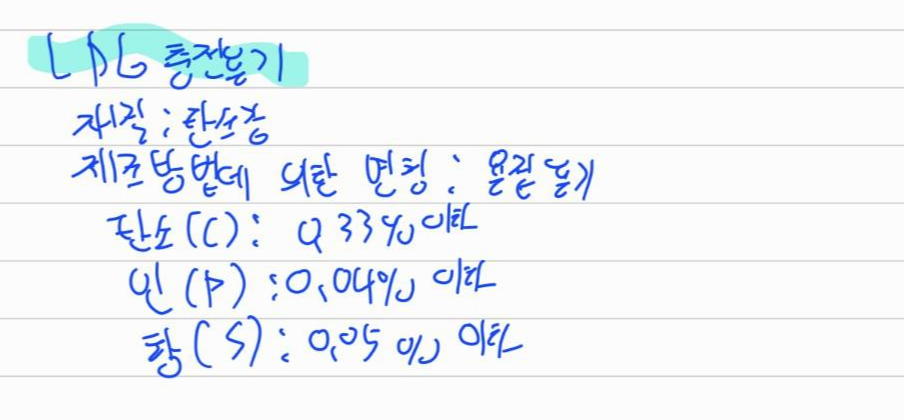 LPG 충전용기
재질 : 탄소강
제조방법에 의한 명칭 : 용접용기
탄소(C) : 0.33% 이하
인(P) : 0.04% 이하
황(S) : 0.05% 이하